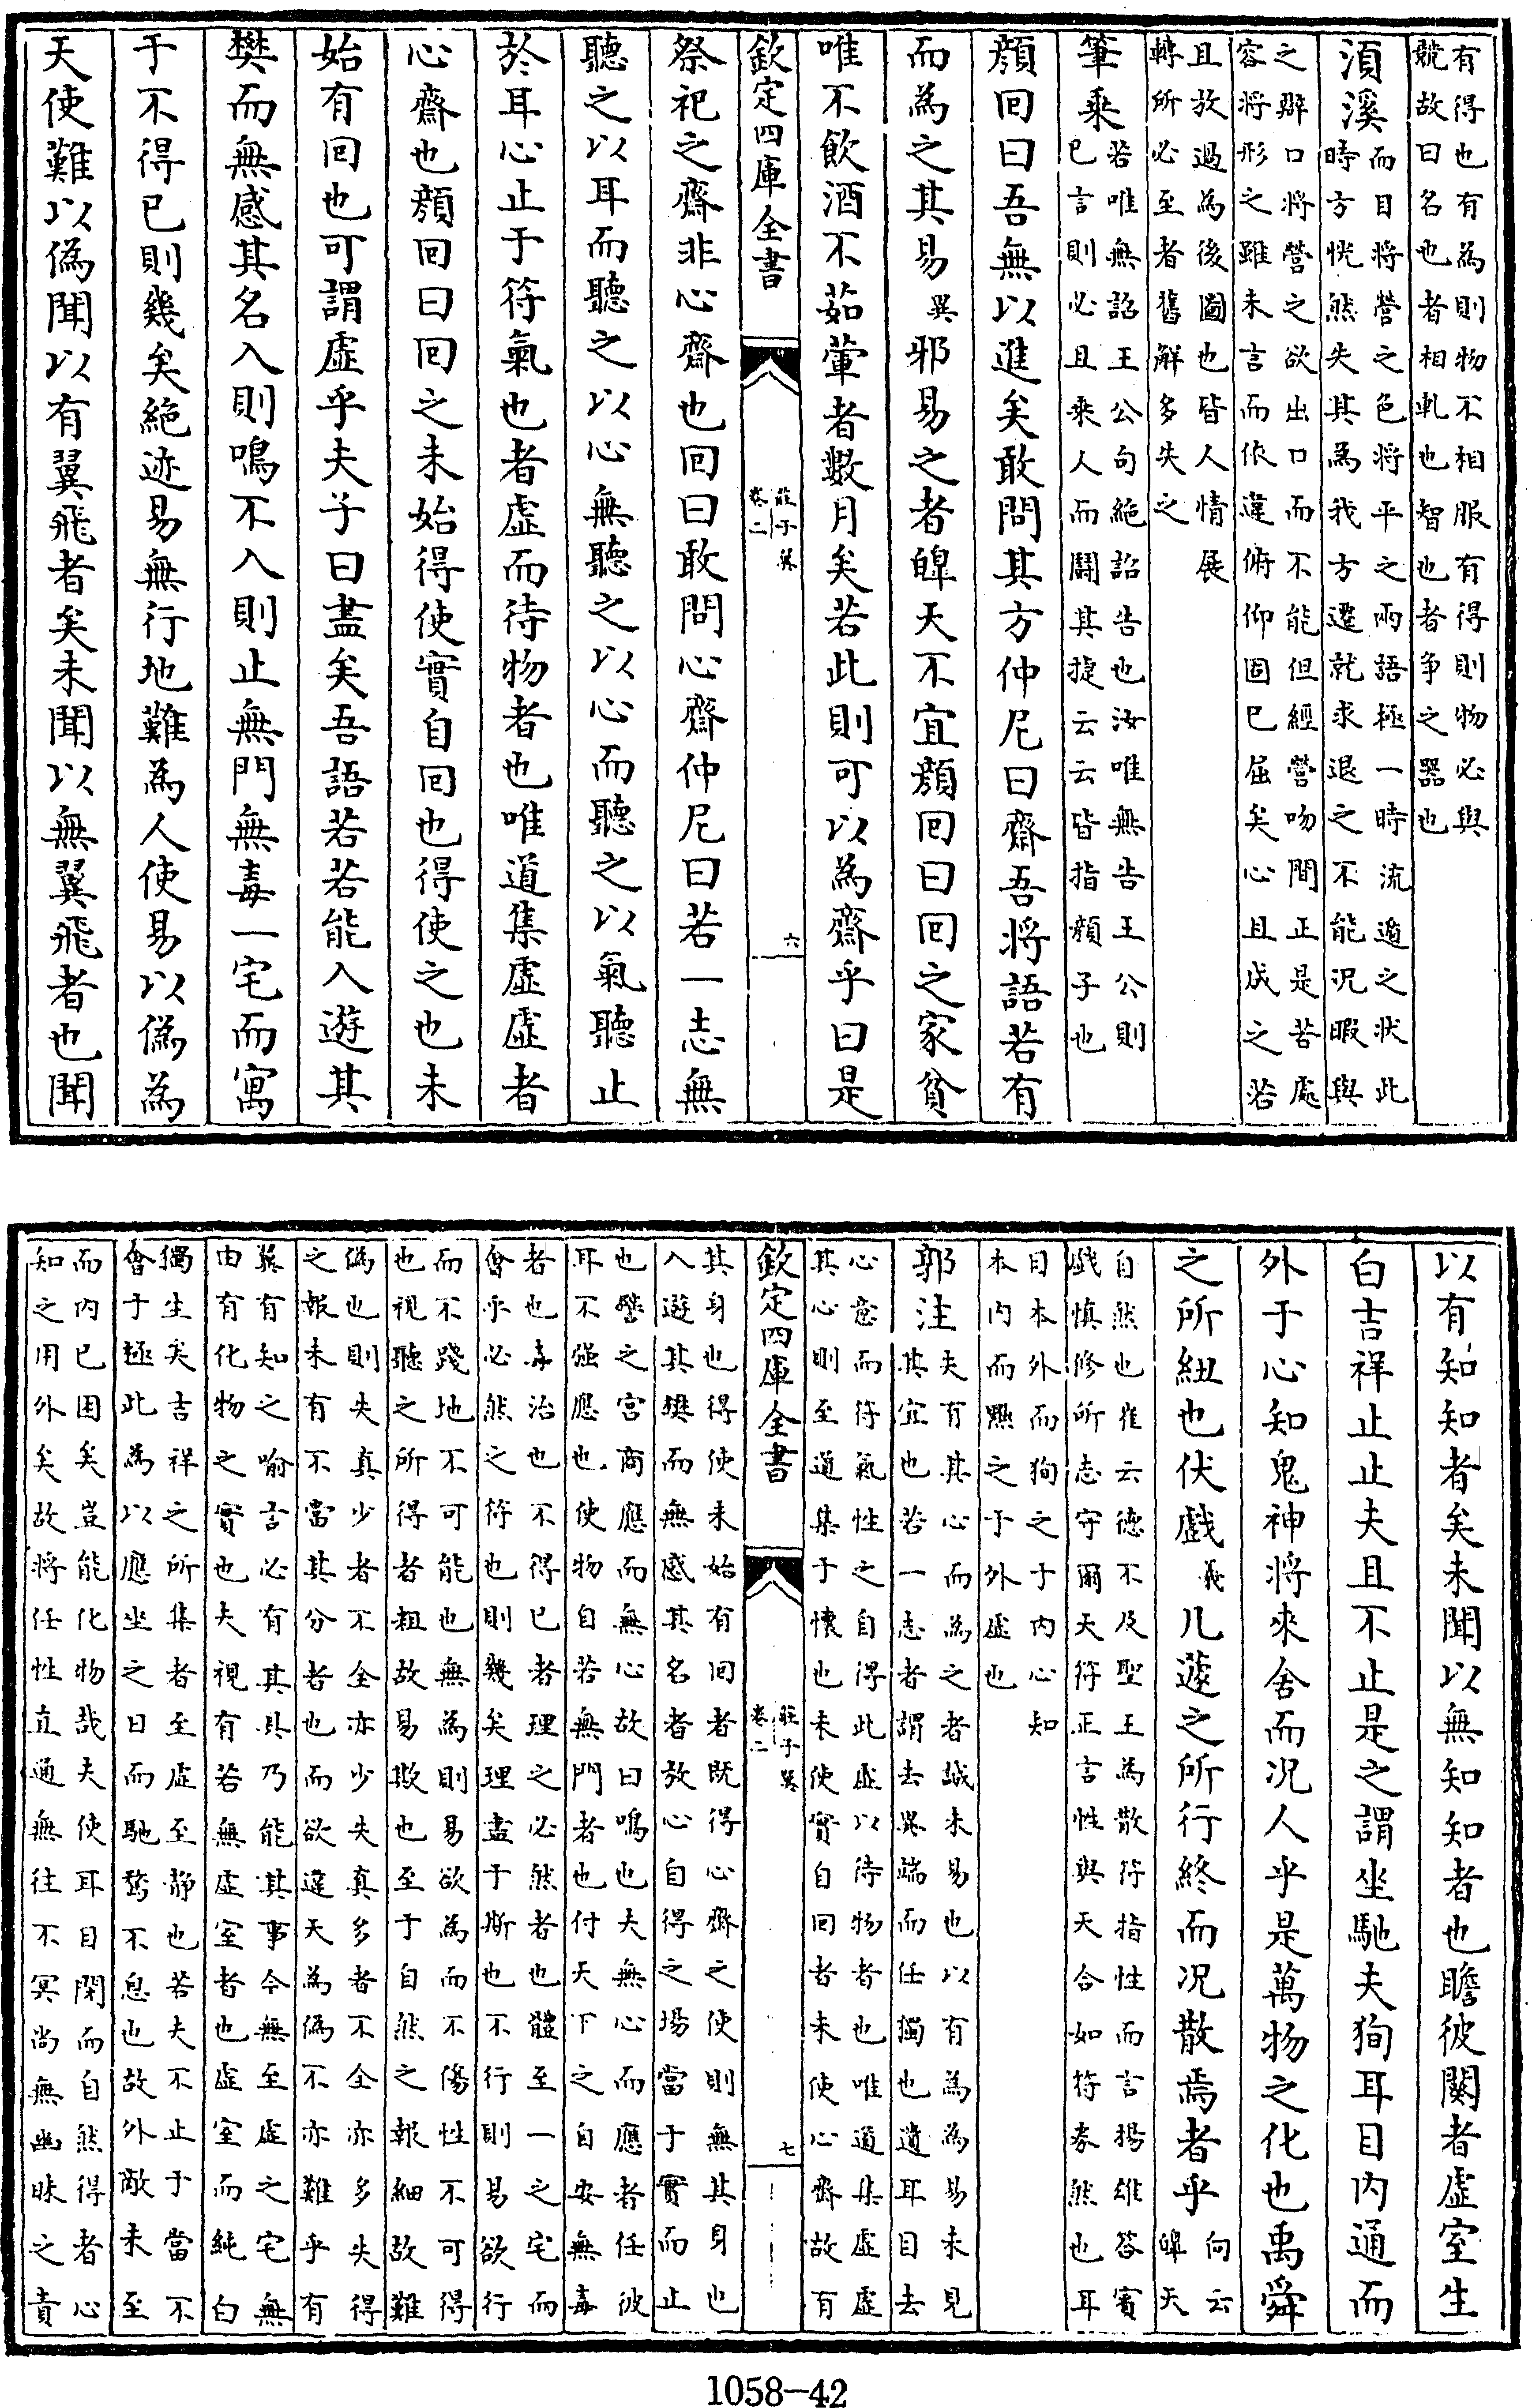 有得也有為則物不相服有得則物必與
競故曰名也者相軋也智也者争之器也
湏溪
而目將營之色將平之兩語極一時流遁之狀此
時方恍然失其為我方遷就求退之不能况暇與
之辯口將營之欲出口而不能但經營吻間正是若處
容將形之雖未言而依違俯仰固已屈矣心且成之若
且放過為後圖也皆人情展
轉所必至者舊解多失之
筆乗
若唯無詔王公句絶詔告也汝唯無告王公則
已言則必且乗人而鬬其捷云云皆指顔子也
顔回曰吾無以進矣敢問其方仲尼曰齋吾將語若有
而為之其易異邪易之者皥天不宜顔回曰回之家貧
唯不飲酒不茹葷者數月矣若此則可以為齋乎曰是
欽定四庫全書
莊子翼
卷二
六
祭祀之齋非心齋也回曰敢問心齋仲尼曰若一志無
聽之以耳而聽之以心無聽之以心而聽之以氣聽止
於耳心止于符氣也者虛而待物者也唯道集虛虛者
心齋也顔回曰回之未始得使實自回也得使之也未
始有回也可謂虛乎夫子曰盡矣吾語若若能入遊其
樊而無感其名入則鳴不入則止無門無毒一宅而寓
于不得已則幾矣絶迹易無行地難為人使易以偽為
天使難以偽聞以有翼飛者矣未聞以無翼飛者也聞
以有知知者矣未聞以無知知者也瞻彼闋者虛室生
白吉祥止止夫且不止是之謂坐馳夫狥耳目内通而
外于心知鬼神將來舍而况人乎是萬物之化也禹舜
之所紐也伏戲羲几蘧之所行終而况散焉者乎
向云
皥天
自然也崔云德不及聖王為散符指性而言揚雄答賓
戲慎修所志守爾天符正言性與天合如符劵然也耳
目本外而狥之于内心知
本内而黜之于外虛也
郭注
夫有其心而為之者誠未易也以有為為易未見
其宜也若一志者謂去異端而任獨也遺耳目去
心意而符氣性之自得此虛以待物者也唯道集虛虛
其心則至道集于懷也未使實自回者未使心齋故有
欽定四庫全書
莊子翼
卷二
七
其身也得使未始有回者既得心齋之使則無其身也
入遊其樊而無感其名者放心自得之塲當于實而止
也譬之宫商應而無心故曰鳴也夫無心而應者任彼
耳不强應也使物自若無門者也付天下之自安無毒
者也毒治也不得已者理之必然者也體至一之宅而
會乎必然之符也則幾矣理盡于斯也不行則易欲行
而不踐地不可能也無為則易欲為而不傷性不可得
也視聽之所得者粗故易欺也至于自然之報細故難
偽也則失真少者不全亦少失真多者不全亦多失得
之報未有不當其分者也而欲違天為偽不亦難乎有
翼有知之喻言必有其具乃能其事今無至虛之宅無
由有化物之實也夫視有若無虛室者也虛室而純白
獨生矣吉祥之所集者至虛至静也若夫不止于當不
會于極此為以應坐之日而馳騖不息也故外敵未至
而内已困矣豈能化物哉夫使耳目閉而自然得者心
知之用外矣故將任性直通無往不冥尚無幽昧之責
1058-42